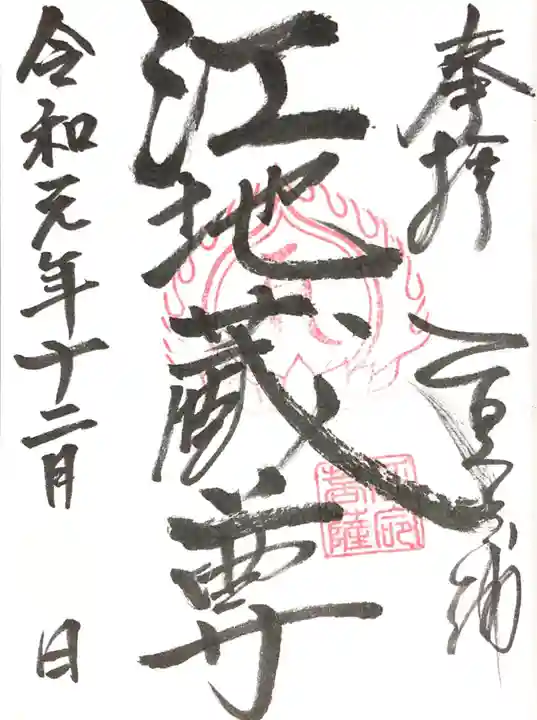 奉拝
江地蔵尊
令和元年十二月 日
菩薩